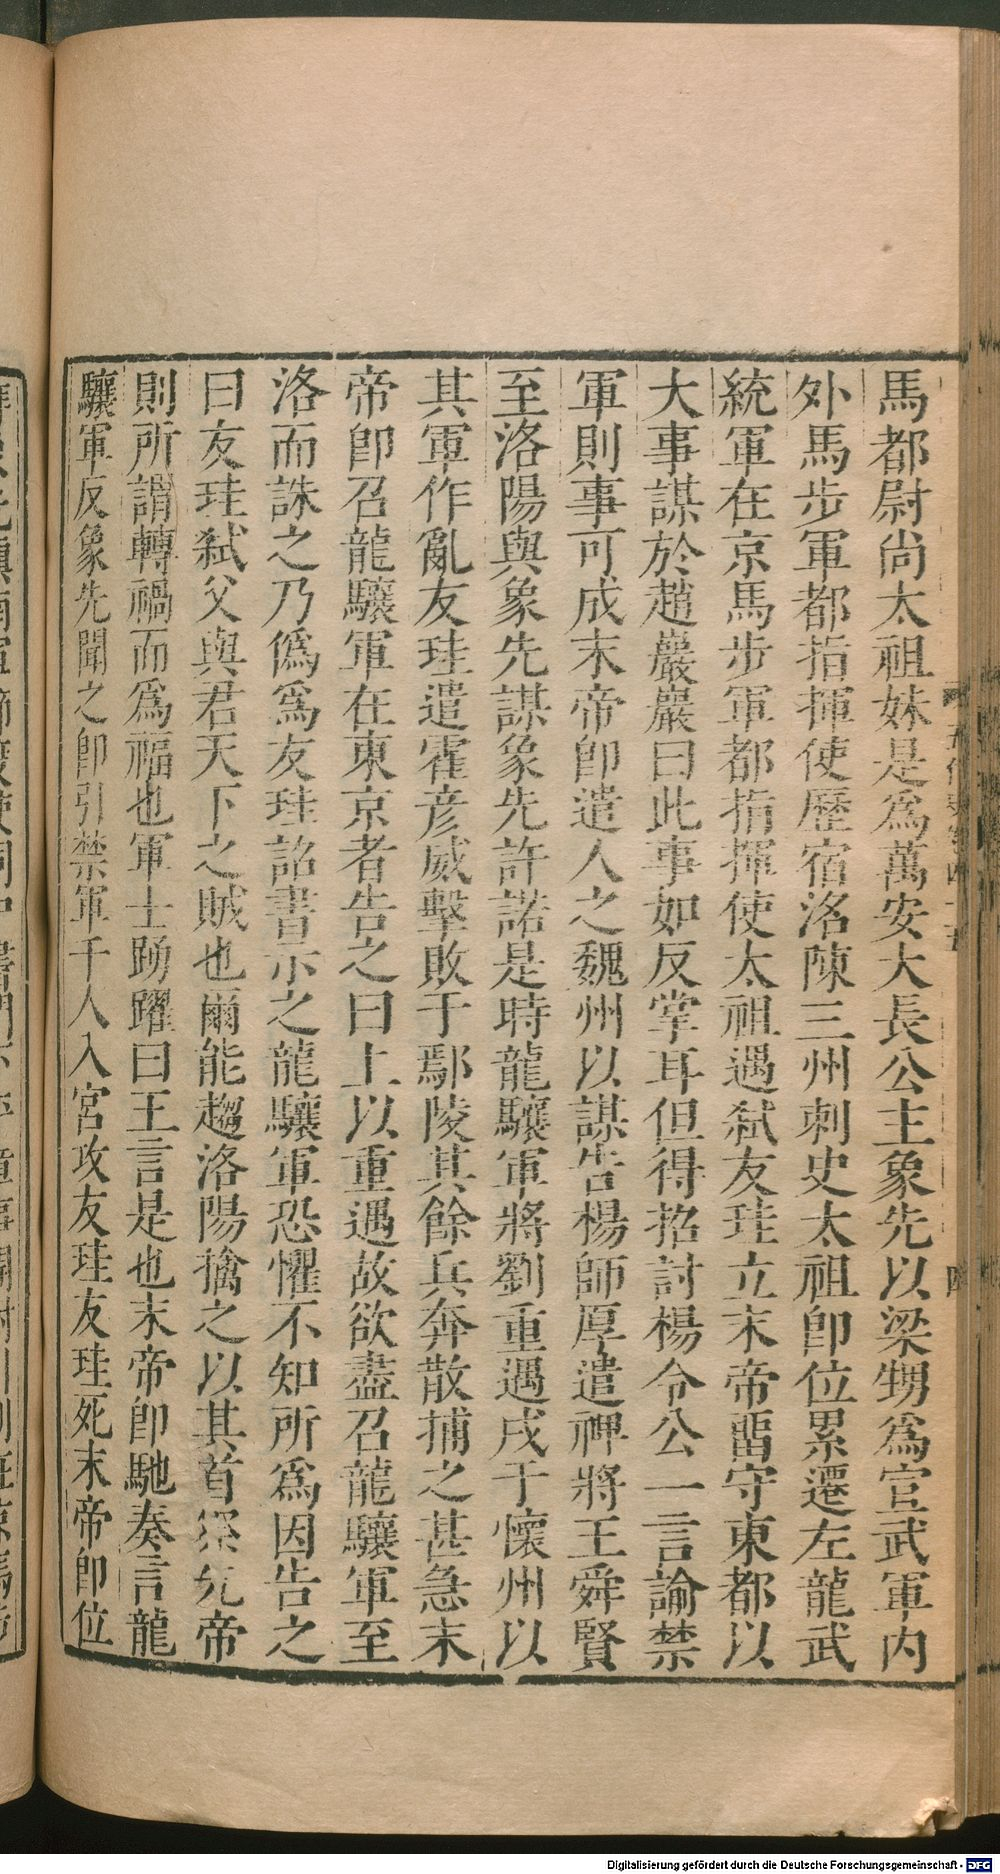 馬都尉尚太祖妹是爲萬安大長公主象先以梁甥爲宣武軍內
外馬步軍都指揮使歷宿洺陳三州刺史太祖卽位累遷左龍武
統軍在京馬步軍都指揮使太祖遇弑友珪立末帝畱守東都以
大事謀於趙巖巖曰此事如反掌耳但得招討楊令公一言諭禁
軍則事可成末帝卽遣人之魏州以謀告楊師厚遣裨將王舜賢
至洛陽與象先謀象先許諾是時龍驤軍將劉重遇戍于懷州以
其軍作亂友珪遣霍彦威擊敗于鄢陵其餘兵奔散捕之甚急末
帝卽召龍驤軍在東京者告之曰上以重遇故欲盡召龍驤軍至
洛而誅之乃僞爲友珪詔書示之龍驤軍恐懼不知所爲因告之
曰友珪弑父與君天下之賊也爾能趨洛陽擒之以其首祭先帝
則所謂轉禍而爲福也軍士踴躍曰王言是也末帝卽馳奏言龍
驤軍反象先聞之卽引禁軍千人入宮攻友珪友珪死末帝卽位
Digitalisierung gefördert durch die Deutsche Forschungsgemeinschaft - DFG